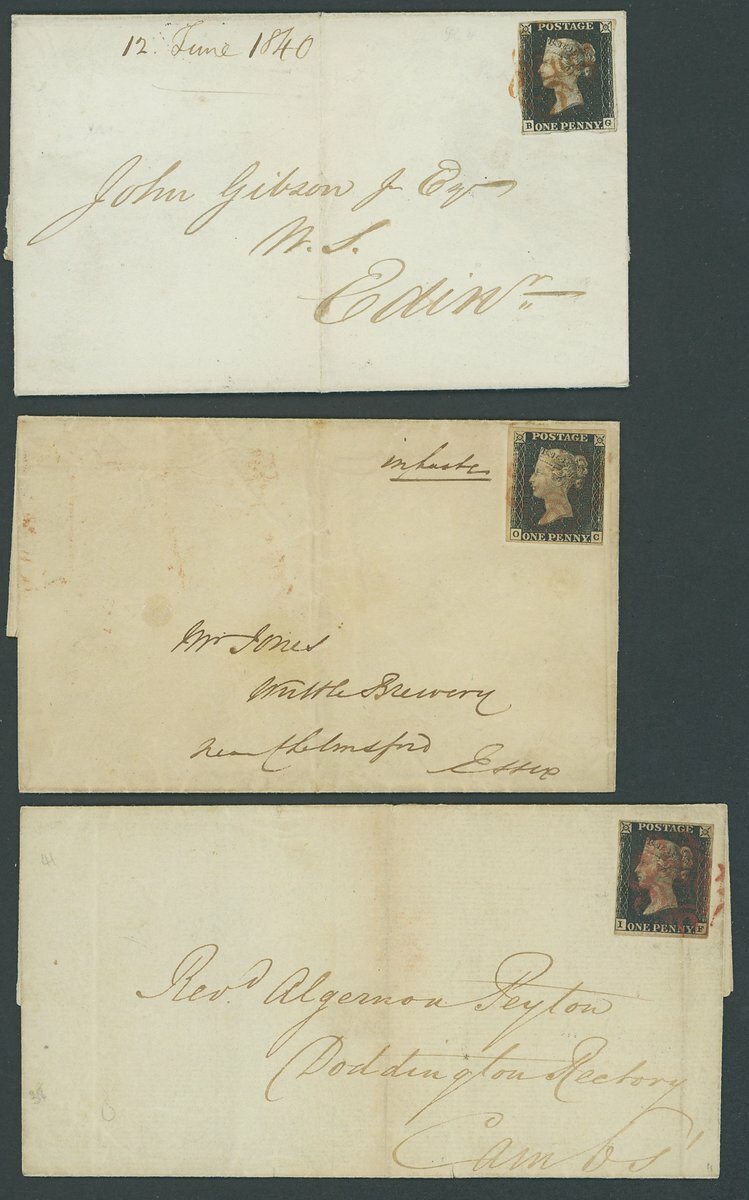 12 June 1840
POSTAGE
B ONE PENNY G
John Gibson Jr Esqr
W.S.
Edinr
in haste
POSTAGE
O ONE PENNY C
Mr Jones
Writtle Brewery
near Chelmsford
Essex
41
POSTAGE
I ONE PENNY F
Revd. Algernon Peyton
Doddington Rectory
Cambs'